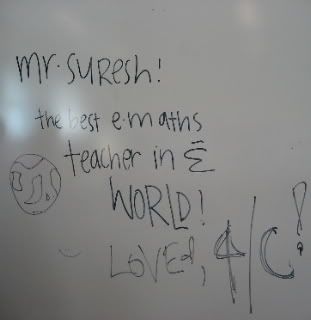 mr. suresh!
the best e.maths
teacher in Ē
WORLD!
LOVEd, 4/C!